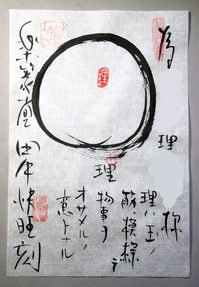 為
様
理
理ハ玉ノ
筋、模様、
理
物事ヲ
オサメル
意トナル
楽篆堂 田中快旺刻